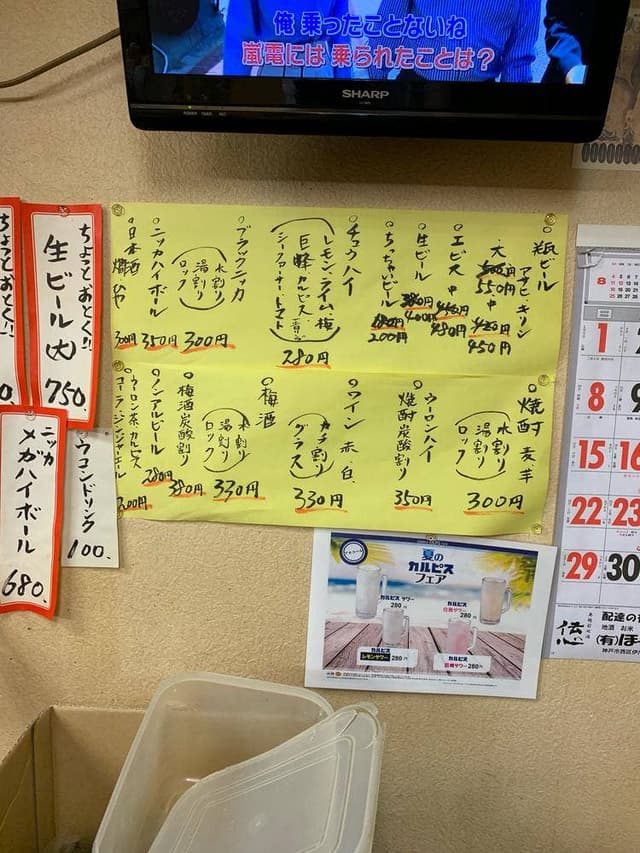 俺 乗ったことないね
嵐電には 乗られたことは？
SHARP
ちょっとおとく!!
生ビール(大)
750.
ニッカ
メガハイボール
680.
ウコンドリンク
100.
○瓶ビール
アサヒ・キリン
大 500円 550円
中 420円 450円
○エビス 中 450円 480円
○生ビール 380円 400円
○ちっちゃいビール 180円 200円
○チュウハイ
レモン・ライム・梅
巨峰・カルピス・青りんご
シークワーサー・トマト
280円
○ブラックニッカ
水割り
湯割り
ロック
300円
○ニッカハイボール 350円
○日本酒 燗 ひや 300円
○焼酎 麦・芋
水割り
湯割り
ロック
300円
○ウーロンハイ
焼酎炭酸割り
350円
○ワイン 赤・白
カチ割り
グラス
330円
○梅酒
水割り
湯割り
ロック
330円
○梅酒炭酸割り 380円
○ノンアルビール 280円
○ウーロン茶・カルピス
コーラ・ジンジャーエール
200円
夏の
カルピス
フェア
カルピス サワー
280円
カルピス
巨峰サワー
280円
カルピス
レモンサワー 280円
カルピス
280円
8
1
8
9
15
16
22
23
29
30
配達の
地酒 お米
(有)ほ
神戸市西区伊